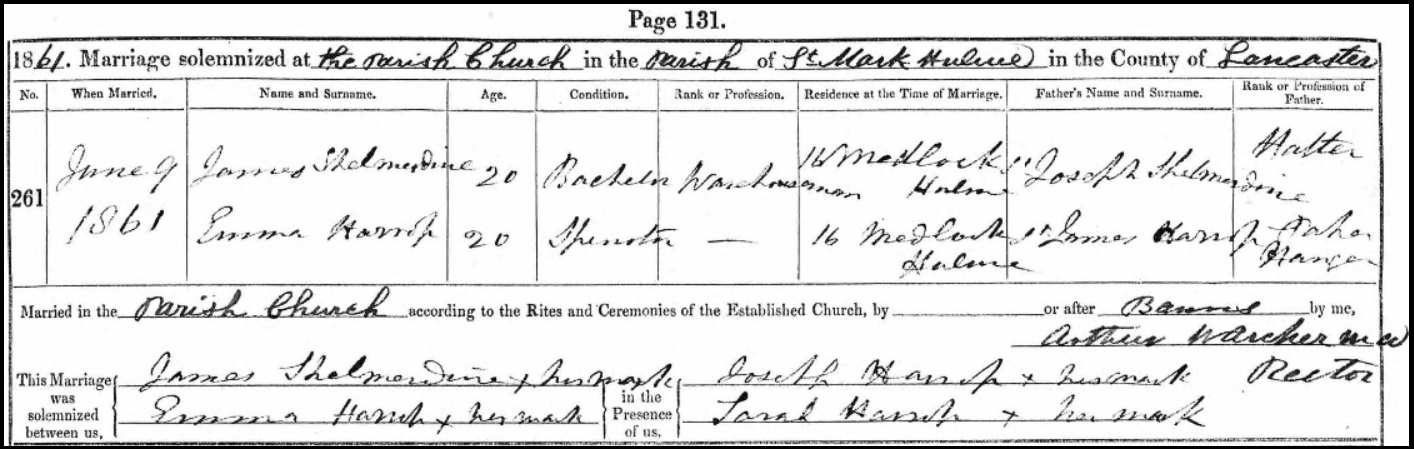 Page 131.
1861. Marriage solemnized at the Parish Church in the Parish of St. Mark Hulme in the County of Lancaster
No. When Married. Name and Surname. Age. Condition. Rank or Profession. Residence at the Time of Marriage. Father's Name and Surname. Rank or Profession of Father.
261 June 9 James Shelmerdine 20 Bachelor Warehouseman 16 Medlock St Joseph Shelmerdine Hatter
Hulme
1861 Emma Harrop 20 Spinster — 16 Medlock St James Harrop Paper
Hulme Hanger
Married in the Parish Church according to the Rites and Ceremonies of the Established Church, by or after Banns by me,
Arthur W Archer
This Marriage was solemnized between us, James Shelmerdine x his mark in the Presence of us, Joseph Harrop x his mark Rector
Emma Harrop x her mark Sarah Harrop x her mark